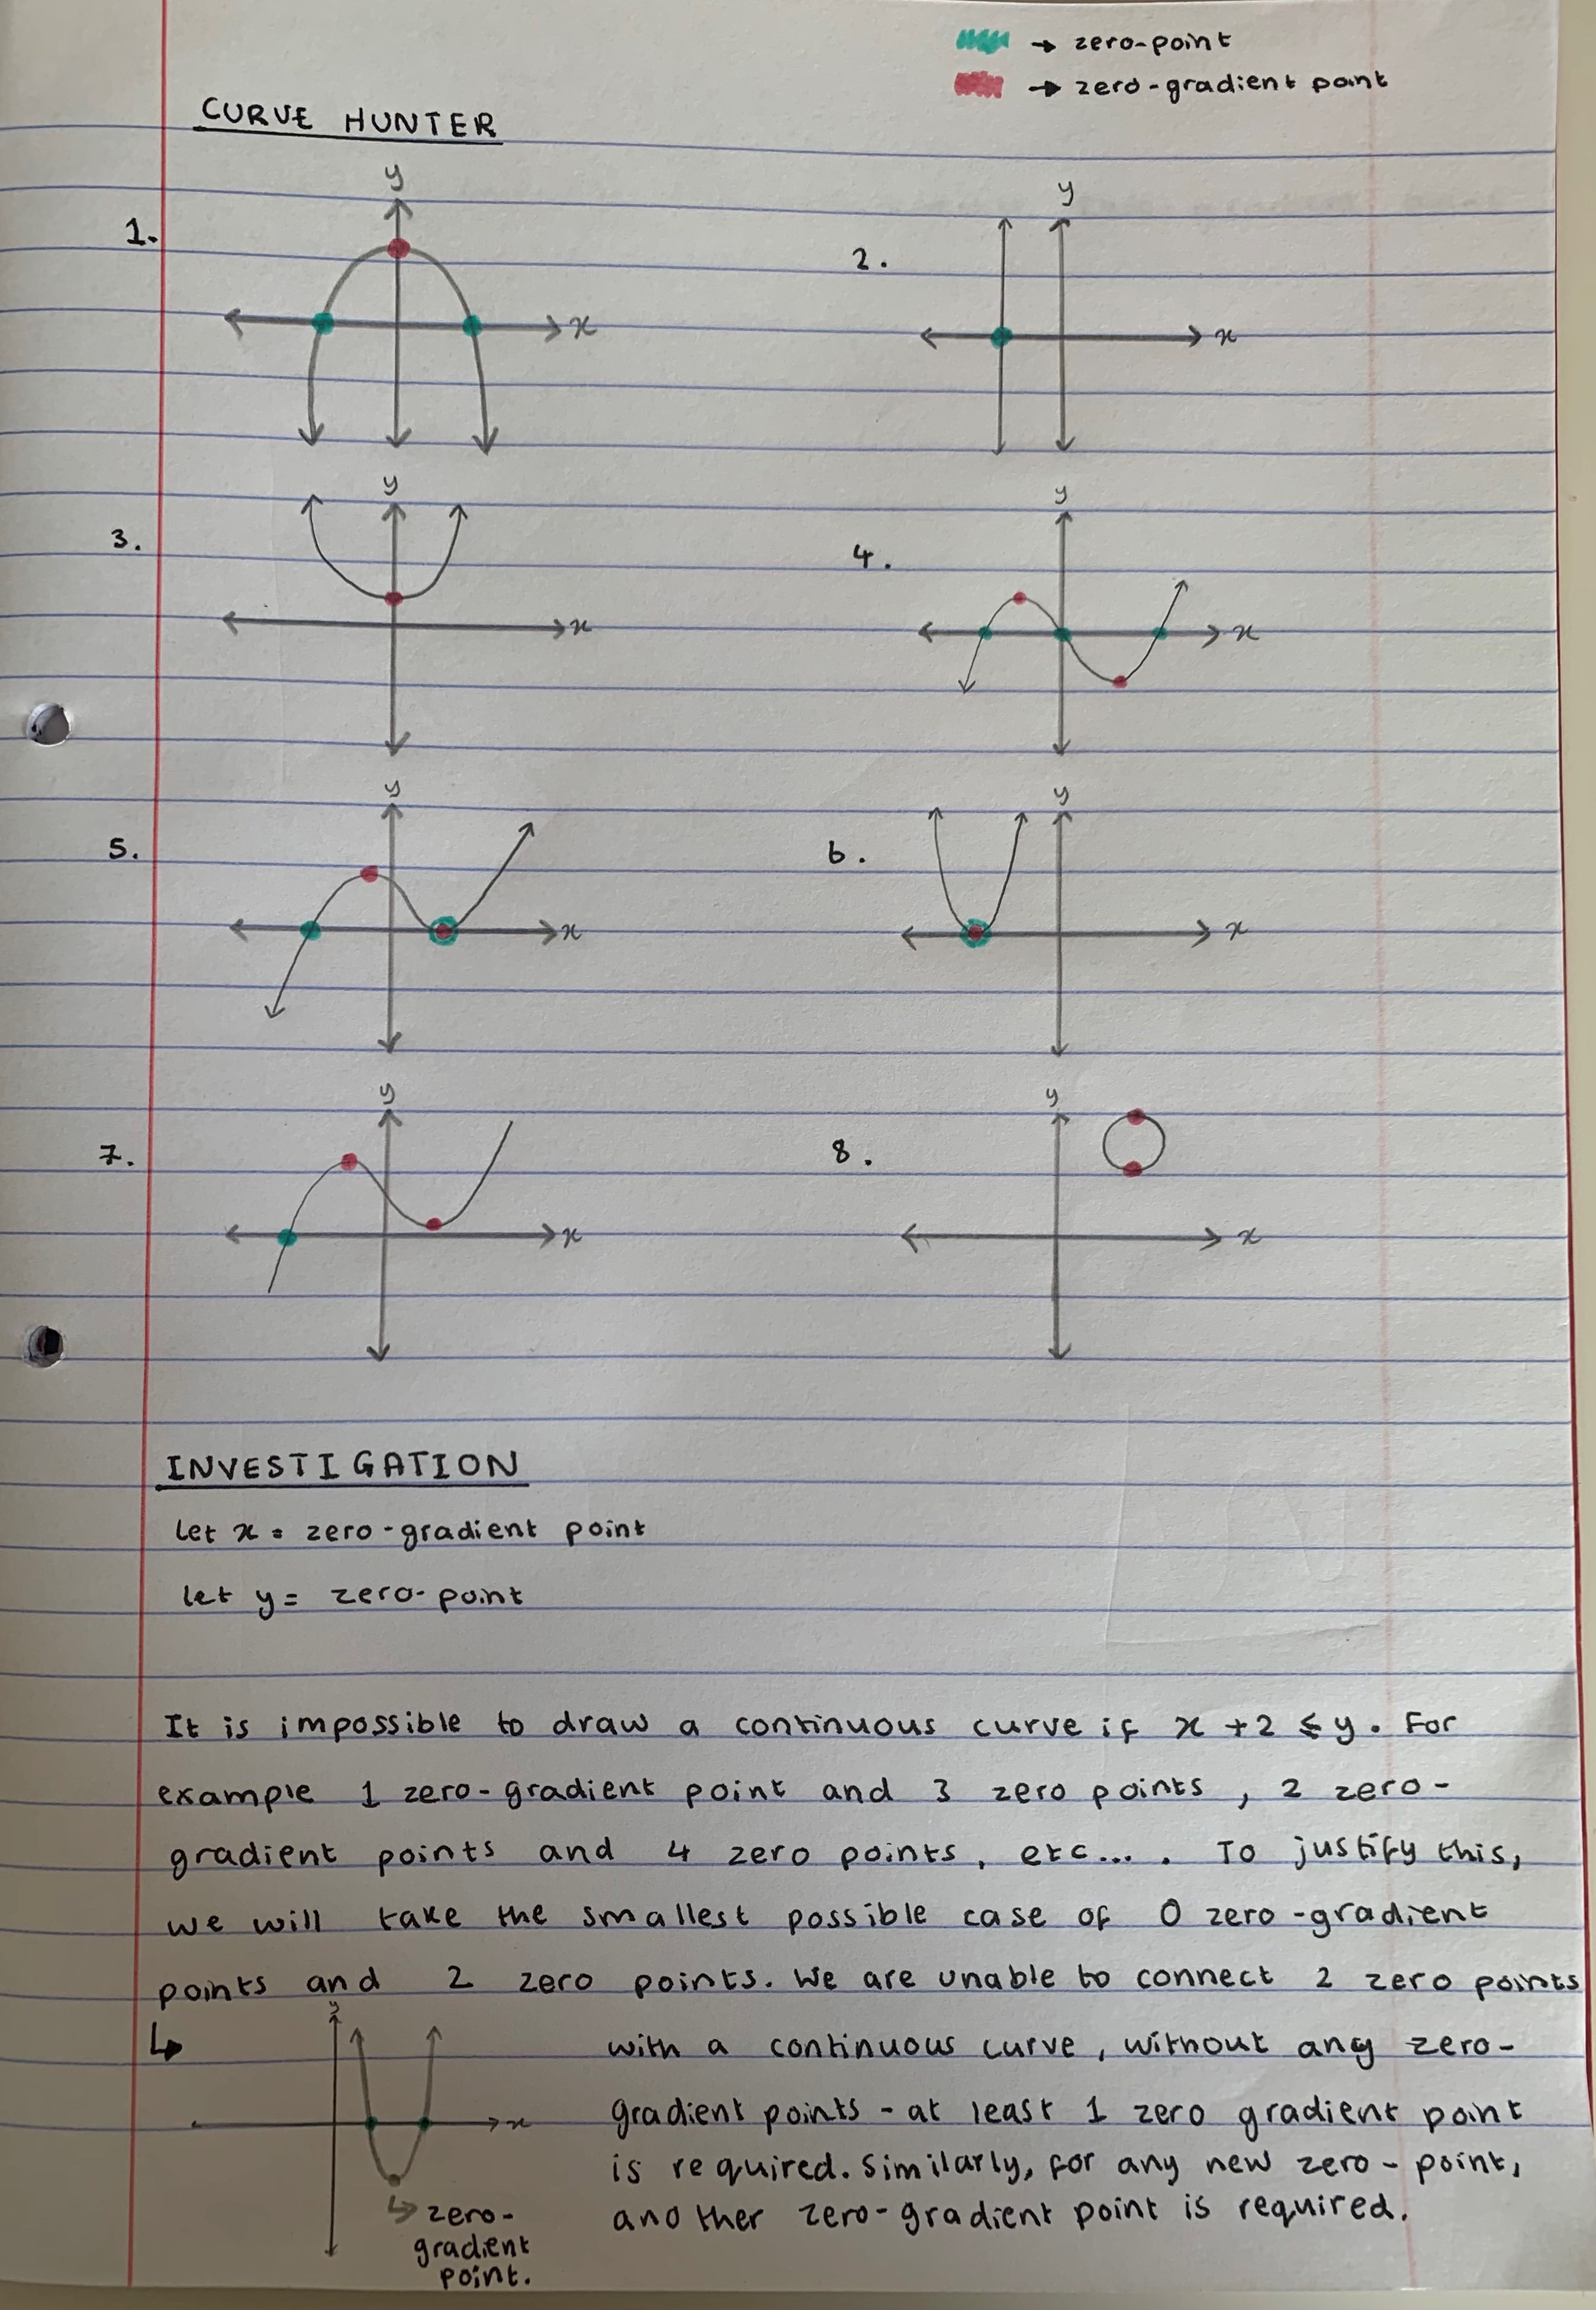 → zero-point
→ zero-gradient point
CURVE HUNTER
y
1.
x
y
2.
x
y
3.
x
y
4.
x
y
5.
x
y
6.
x
y
7.
x
y
8.
x
INVESTIGATION
Let x = zero-gradient point
Let y = zero-point
It is impossible to draw a continuous curve if x + 2 ≤ y. For
example 1 zero-gradient point and 3 zero points, 2 zero-
gradient points and 4 zero points, etc... . To justify this,
we will take the smallest possible case of 0 zero-gradient
points and 2 zero points. We are unable to connect 2 zero points
with a continuous curve, without any zero-
gradient points - at least 1 zero gradient point
is required. Similarly, for any new zero-point,
another zero-gradient point is required.
y
x
↳ zero-
gradient
point.